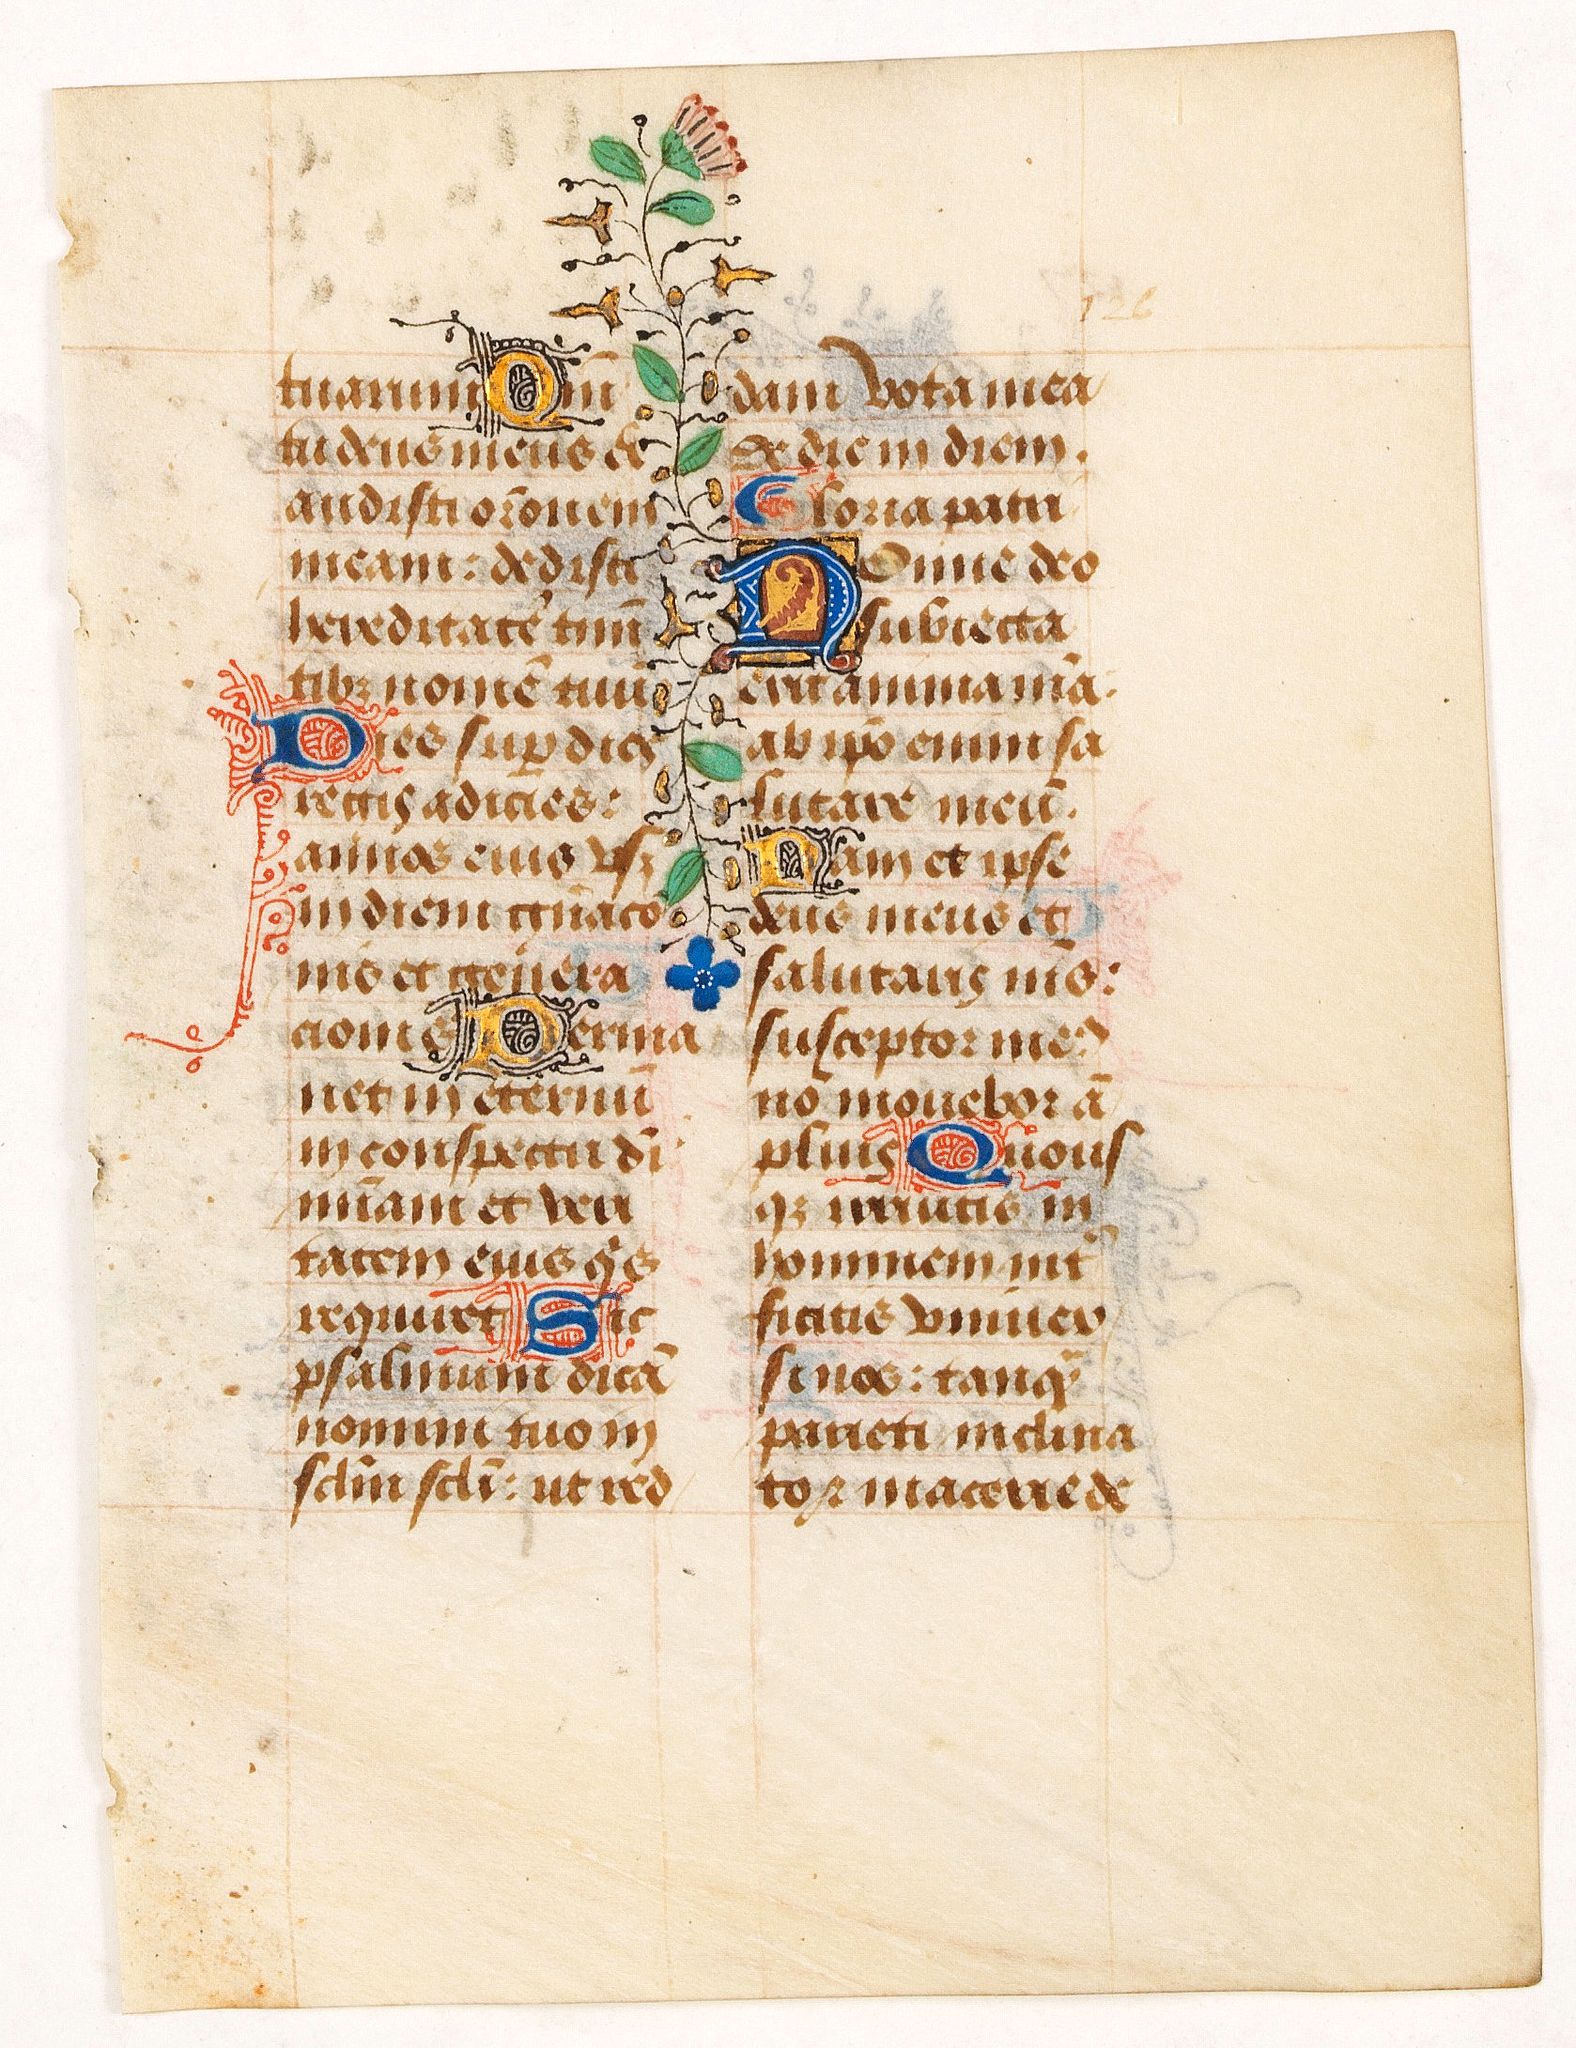 126
tuarum Qm̄
tu deus meus ex
audisti or̄onem
meam : dedisti
hereditatē timē
tibꝫ nomē tuū
Dies suꝑ dies
regis adicies :
annos eius vsqꝫ
in diem gn̄acio
nis et genera
cionis Perma
net in eternū
in conspectu dī
mīam et veri
tatem eius q̄s
requiret Sic
psalmum dicā
nomini tuo in
sclm̄ scli̅ : ut red
dam vota mea
de die in diem .
Gloria patri
Nonne deo
subiecta
erit anima mā .
ab ip̄o enim sa
lutare meū .
Nam et ipse
deus meus et
salutaris ms̄ :
susceptor meꝰ
nō mouebor ā
plius Quous
qꝫ irruitis in
hominem int̄
ficitis vniuer
si uos : tanq̄
parieti inclina
to ꝛ macerie de